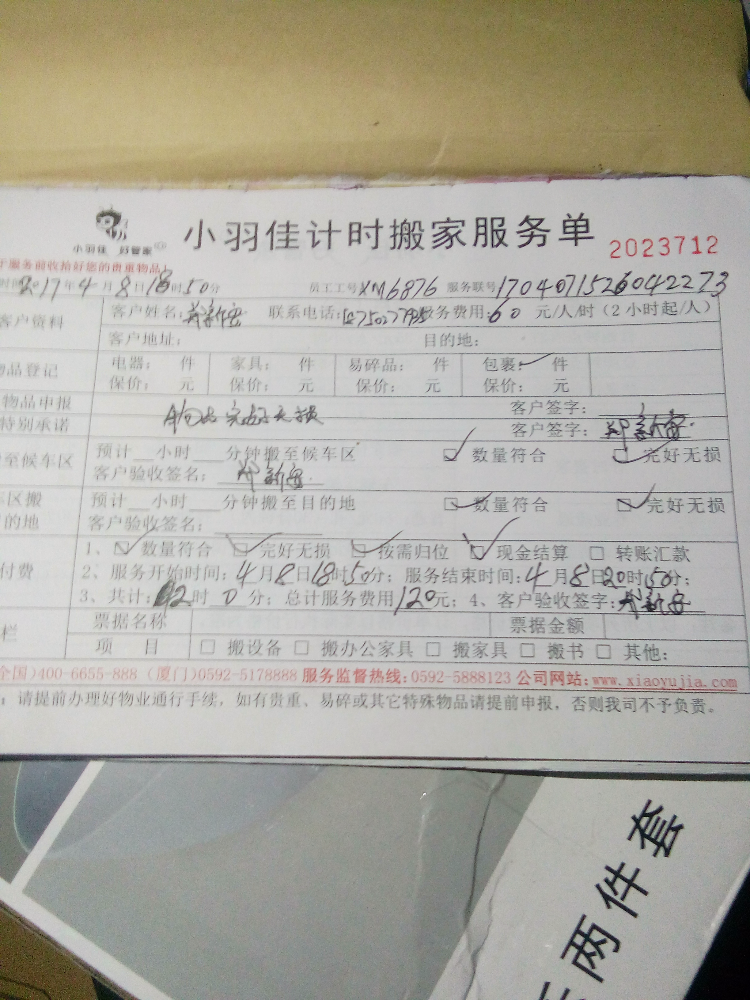 小羽佳 好管家
小羽佳计时搬家服务单
2023712
于服务前收拾好您的贵重物品!
时间2017年4月8日18时50分 员工工号XM6876 服务联号1704071526042273
客户资料 客户姓名: 联系电话: 服务费用:60元/人/时(2小时起/人)
客户地址: 目的地:
物品登记 电器: 件 家具: 件 易碎品: 件 包裹: 件
保价: 元 保价: 元 保价: 元 保价: 元
物品申报 客户签字:
特别承诺 物品完好无损 客户签字: 郑新密
至候车区 预计__小时__分钟搬至候车区 ☑ 数量符合 ☑ 完好无损
客户验收签名: 郑新密
车区搬 预计__小时__分钟搬至目的地 ☑ 数量符合 ☑ 完好无损
目的地 客户验收签名:
1、☑ 数量符合 ☑ 完好无损 ☑ 按需归位 ☑ 现金结算 □ 转账汇款
付费 2、服务开始时间:4月8日18时50分; 服务结束时间:4月8日20时50分;
3、共计:02时0分; 总计服务费用120元; 4、客户验收签字:
栏 票据名称 票据金额
项 目 □ 搬设备 □ 搬办公家具 □ 搬家具 □ 搬书 □ 其他:
全国)400-6655-888 (厦门)0592-5178888 服务监督热线:0592-5888123 公司网站:www.xiaoyujia.com
:请提前办理好物业通行手续,如有贵重、易碎或其它特殊物品请提前申报,否则我司不予负责。
两件套